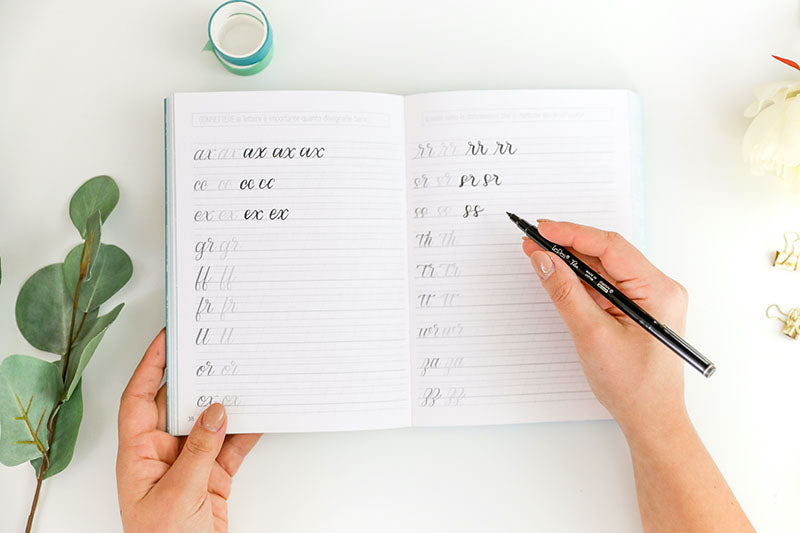 CONNETTERE le lettere è importante quanto disegnarle bene.
ax ax ax ax ax
cc cc cc cc
ex ex ex ex
gr gr
ff ff
fr fr
ll ll
or or
ox ox
38
rr rr rr rr
sr sr sr sr
ss ss ss
Th Th
Tr Tr
tt tt
wr wr
za za
zz zz